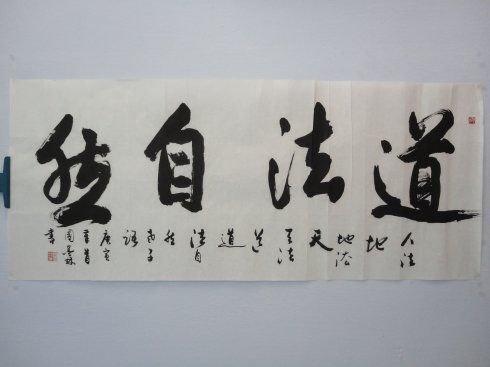 道法自然
人法
地
地法
天
天法
道
道
法自
然
老子
语
庚寅
年首
周
书